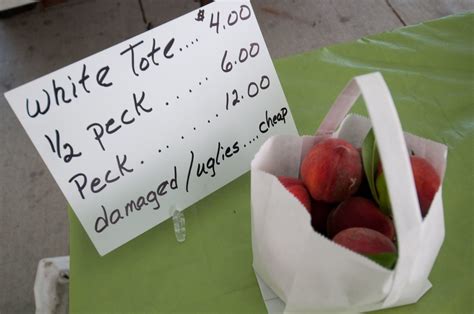 White Tote.... $4.00
1/2 peck ..... 6.00
Peck....... 12.00
damaged/uglies....cheap